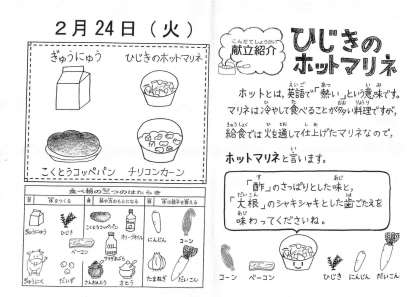 2月24日(火)
ぎゅうにゅう
ひじきのホットマリネ
こくとうコッペパン
チリコンカーン
食べ物の三つのはたらき
ぎゅうにゅう
ひじき
ベーコン
ぎゅうにく
だいず
こんねんどう
さとう
にんじん
コーン
たまねぎ
だいこん
こんだてしょうかい
献立紹介
ひじきの
ホットマリネ
ホットとは、英語で「熱い」という意味です。
マリネは冷やして食べることが多い料理ですが、
給食では火を通して仕上げたマリネなので、
ホットマリネと言います。
「酢」のさっぱりとした味と、
「大根」のシャキシャキとした歯ごたえを
味わってくださいね。
コーン
ベーコン
ひじき
にんじん
だいこん